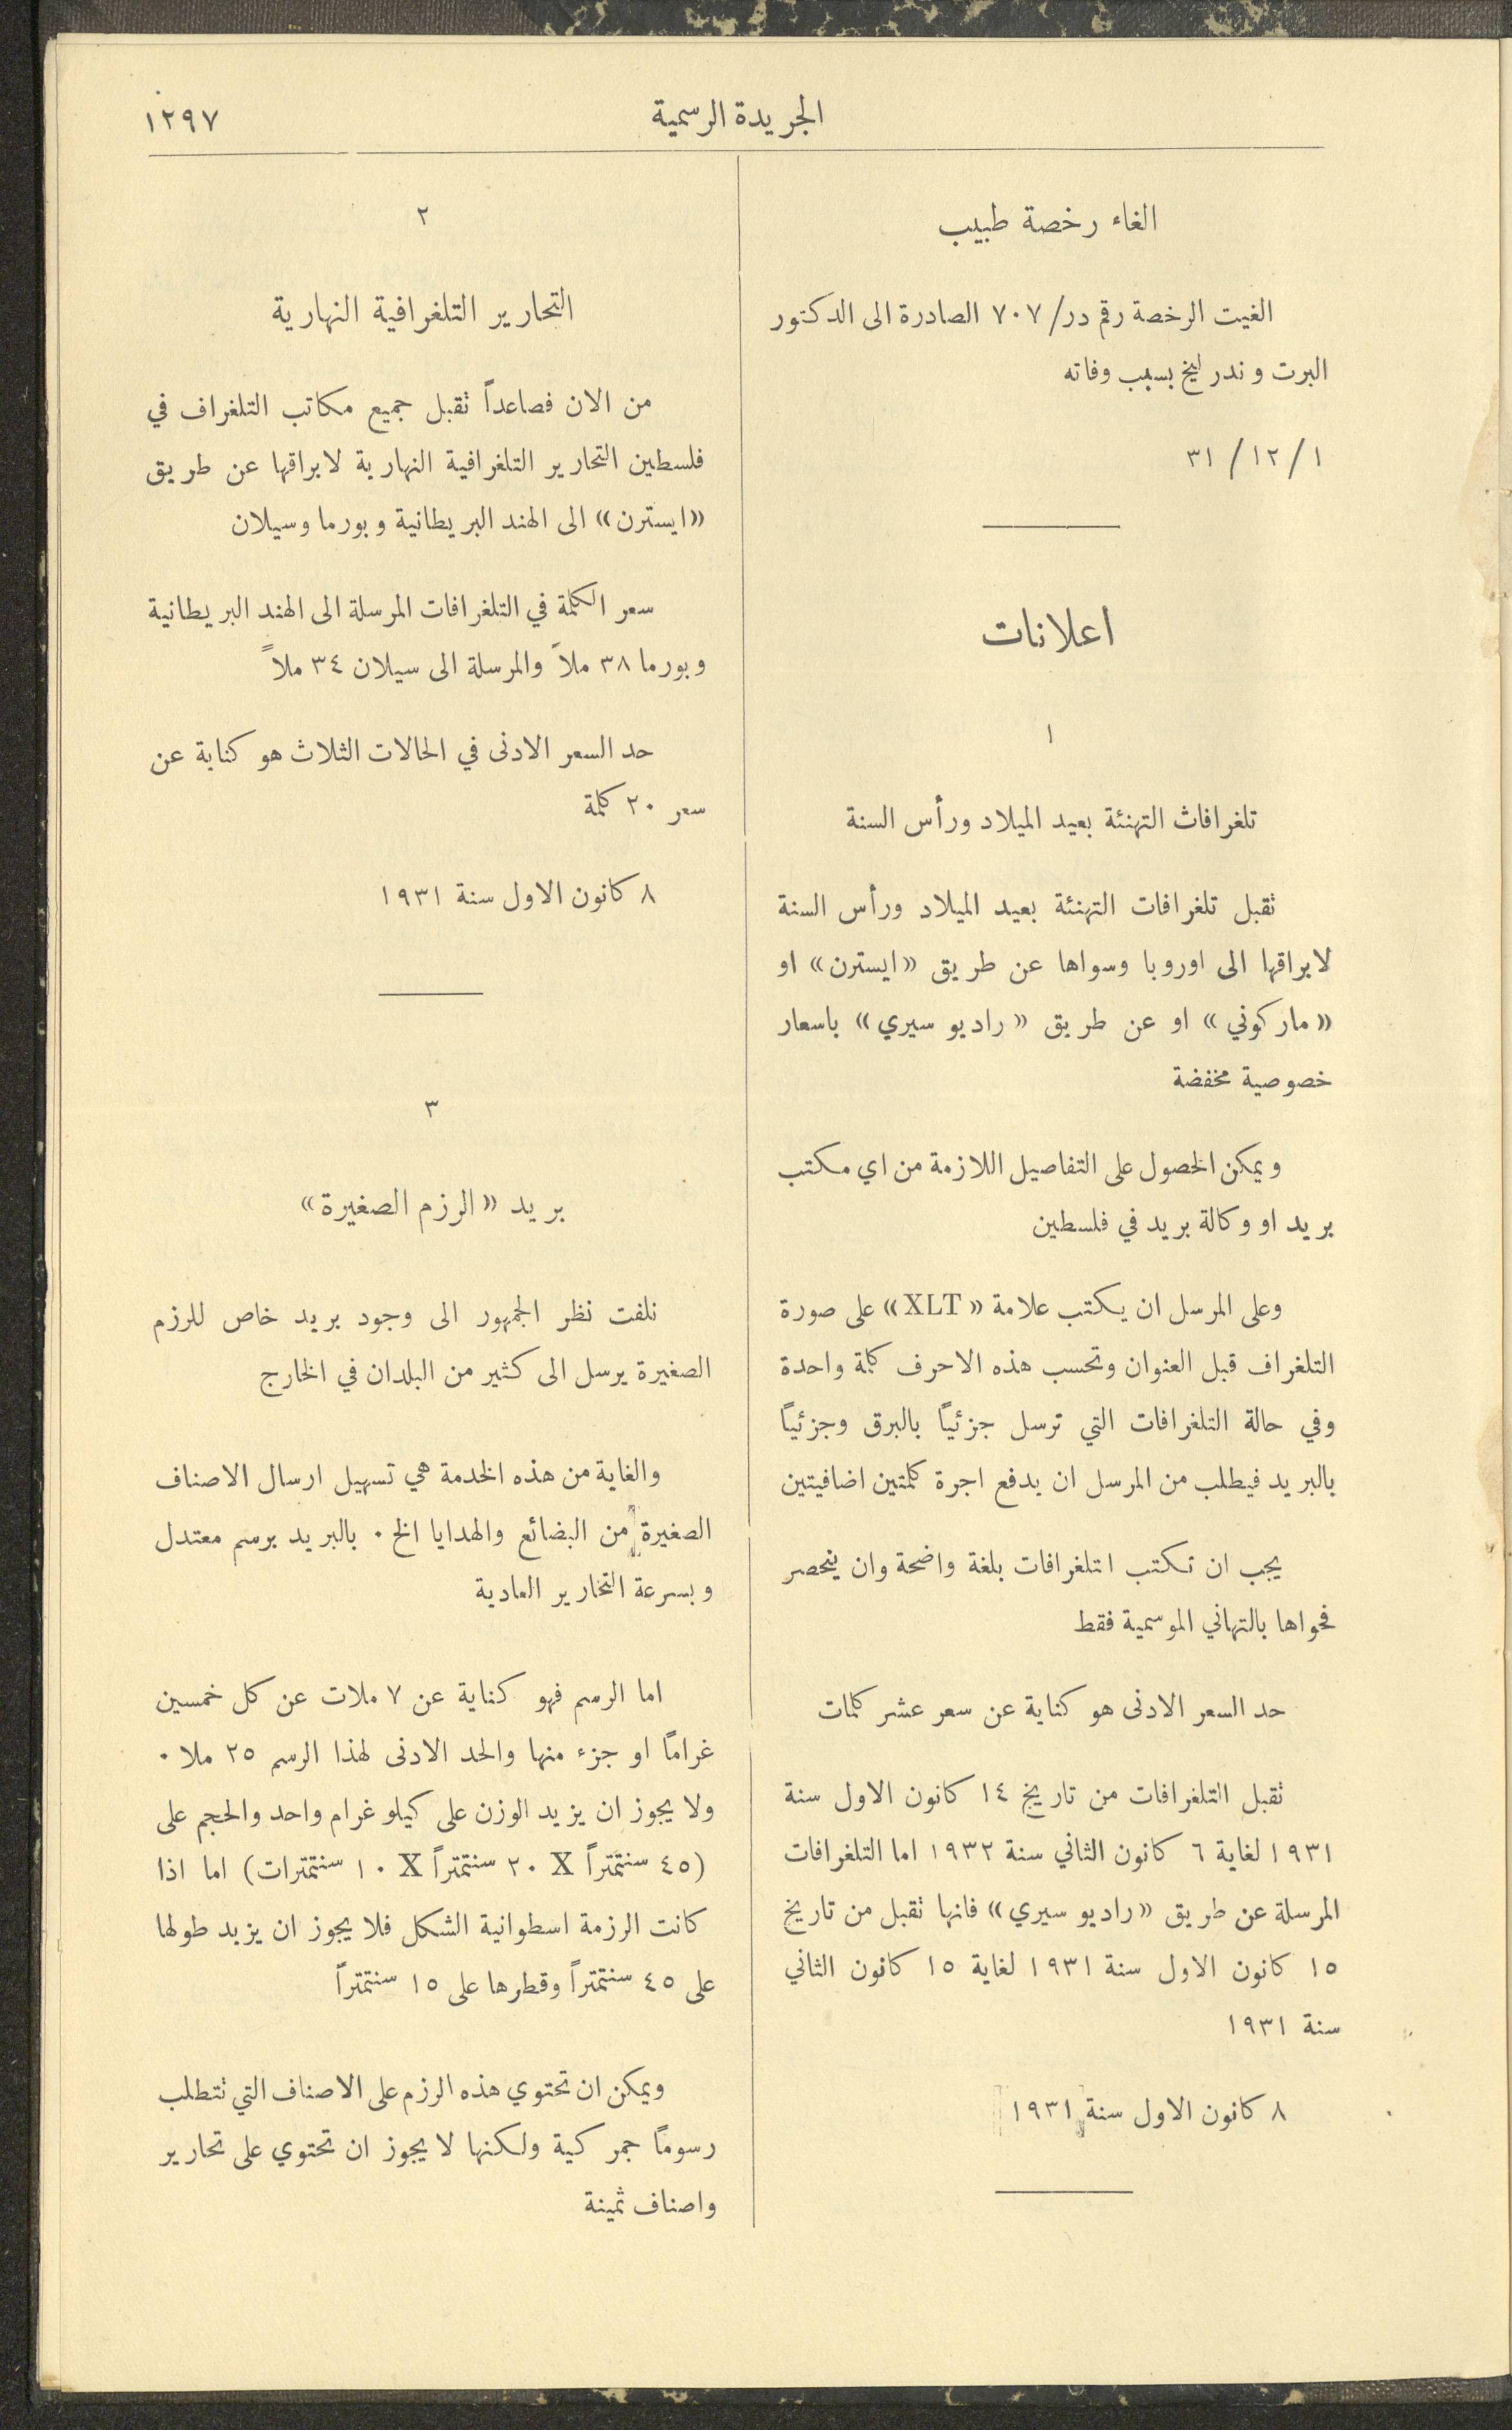 الجريدة الرسمية
١٢٩٧
الغاء رخصة طبيب
الغيت الرخصة رقم در/ ٧٠٧ الصادرة الى الدكتور
البرت وندرليخ بسبب وفاته
١ / ١٢ / ٣١
اعلانات
١
تلغرافات التهنئة بعيد الميلاد ورأس السنة
تقبل تلغرافات التهنئة بعيد الميلاد ورأس السنة
لابراقها الى اوروبا وسواها عن طريق «ايسترن» او
«ماركوني» او عن طريق «راديو سيري» باسعار
خصوصية مخفضة
ويمكن الحصول على التفاصيل اللازمة من اي مكتب
بريد او وكالة بريد في فلسطين
وعلى المرسل ان يكتب علامة «XLT» على صورة
التلغراف قبل العنوان وتحسب هذه الاحرف كلمة واحدة
وفي حالة التلغرافات التي ترسل جزئياً بالبرق وجزئياً
بالبريد فيطلب من المرسل ان يدفع اجرة كلمتين اضافيتين
يجب ان تكتب اتلغرافات بلغة واضحة وان ينحصر
فحواها بالتهاني الموسمية فقط
حد السعر الادنى هو كناية عن سعر عشر كلمات
تقبل التلغرافات من تاريخ ١٤ كانون الاول سنة
١٩٣١ لغاية ٦ كانون الثاني سنة ١٩٣٢ اما التلغرافات
المرسلة عن طريق «راديو سيري» فانها تقبل من تاريخ
١٥ كانون الاول سنة ١٩٣١ لغاية ١٥ كانون الثاني
سنة ١٩٣١
٨ كانون الاول سنة ١٩٣١
٢
التحارير التلغرافية النهارية
من الان فصاعداً تقبل جميع مكاتب التلغراف في
فلسطين التحارير التلغرافية النهارية لابراقها عن طريق
«ايسترن» الى الهند البريطانية وبورما وسيلان
سعر الكلمة في التلغرافات المرسلة الى الهند البريطانية
وبورما ٣٨ ملاً والمرسلة الى سيلان ٣٤ ملاً
حد السعر الادنى في الحالات الثلاث هو كناية عن
سعر ٢٠ كلمة
٨ كانون الاول سنة ١٩٣١
٣
بريد «الرزم الصغيرة»
نلفت نظر الجمهور الى وجود بريد خاص للرزم
الصغيرة يرسل الى كثير من البلدان في الخارج
والغاية من هذه الخدمة هي تسهيل ارسال الاصناف
الصغيرة من البضائع والهدايا الخ ٠ بالبريد برسم معتدل
وبسرعة التحارير العادية
اما الرسم فهو كناية عن ٧ ملات عن كل خمسين
غراماً او جزء منها والحد الادنى لهذا الرسم ٢٥ ملا ٠
ولا يجوز ان يزيد الوزن على كيلو غرام واحد والحجم على
(٤٥ سنتمتراً X ٢٠ سنتمتراً X ١٠ سنتمترات) اما اذا
كانت الرزمة اسطوانية الشكل فلا يجوز ان يزيد طولها
على ٤٥ سنتمتراً وقطرها على ١٥ سنتمتراً
ويمكن ان تحتوي هذه الرزم على الاصناف التي تتطلب
رسوماً جمركية ولكنها لا يجوز ان تحتوي على تحارير
واصناف ثمينة